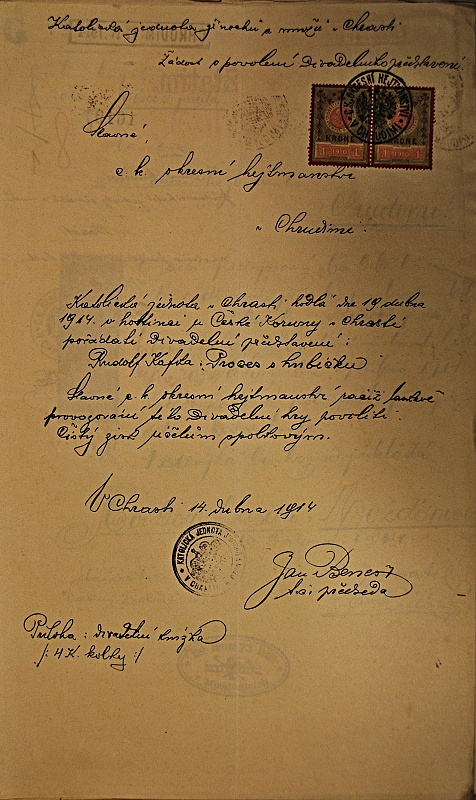 Katolická jednota jinochů a mužů v Chrasti
Žádost o povolení Divadelního představení
Slavné,
c. k. okresní hejtmanství
v Chrudimi.
OKRESNÍ HEJTM
V CHRUDIMI
KRONE KRONE
1 1910 1 1 1910 1
Katolická jednota v Chrasti hodlá dne 19 dubna
1914. v hostinci u České Koruny v Chrasti
pořádati Divadelní představení:
Rudolf Kafka: Proces s hubičku
Slavné c. k. okresní hejtmanství račiž laskavě
provozování této Divadelní hry povoliti.
Čistý zisk účelům spolkovým.
V Chrasti 14. dubna 1914
KATOLICKÁ JEDNOTA
V CHRASTI
Jan
t. č. předseda
Příloha: divadelní knížka
/: 4 K. kolky :/